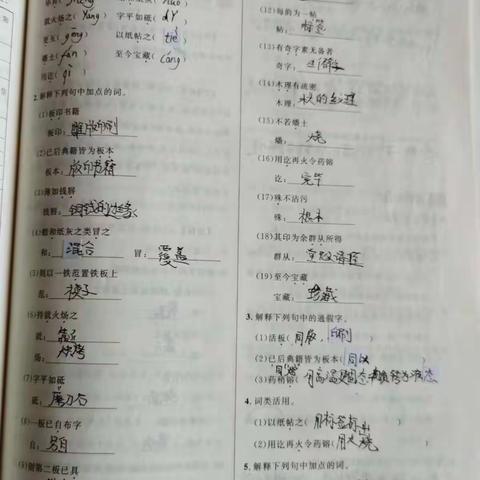 就火炀之(yáng)  字平如砥(dǐ)
更互(gēng)  以纸帖之(tiē)
燔土(fán)  至今宝藏(cáng)
用讫(qì)
2.解释下列句中加点的词。
(1)板印书籍
板印:雕版印刷
(2)已后典籍皆为板本
板本:版印书籍
(3)薄如钱唇
钱唇:铜钱的边缘
(4)腊和纸灰之类冒之
和:混合  冒:覆盖
(5)则以一铁范置铁板上
范:模子
(6)持就火炀之
就:靠近
炀:烘烤
(7)字平如砥
砥:磨刀石
(8)一板已自布字
自:另自
(9)则第二板已具
(12)每韵为一帖
帖:标签
(13)有奇字素无备者
奇字:
(14)木理有疏密
木理:木的纹理
(15)不若燔土
燔:烧
(16)用讫再火令药镕
讫:完毕
(17)殊不沾污
殊:根本
(18)其印为余群从所得
群从:
(19)至今宝藏
宝藏:珍藏
3.解释下列句中的通假字。
(1)活板(同版,印刷)
(2)已后典籍皆为板本(同以)
(3)药稍镕(
4.词类活用。
(1)以纸帖之(用标签标出)
(2)用讫再火令药镕(用火烧)
5.解释下列句中加点的词。